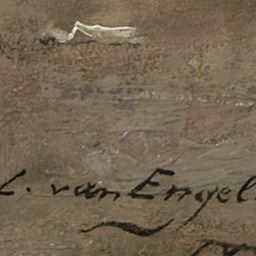 L. van Engel